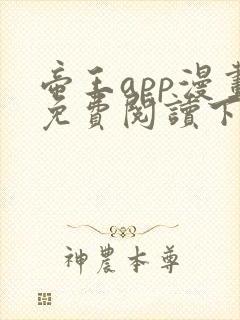 帝王app漫畫
免費閱讀下
神農本尊